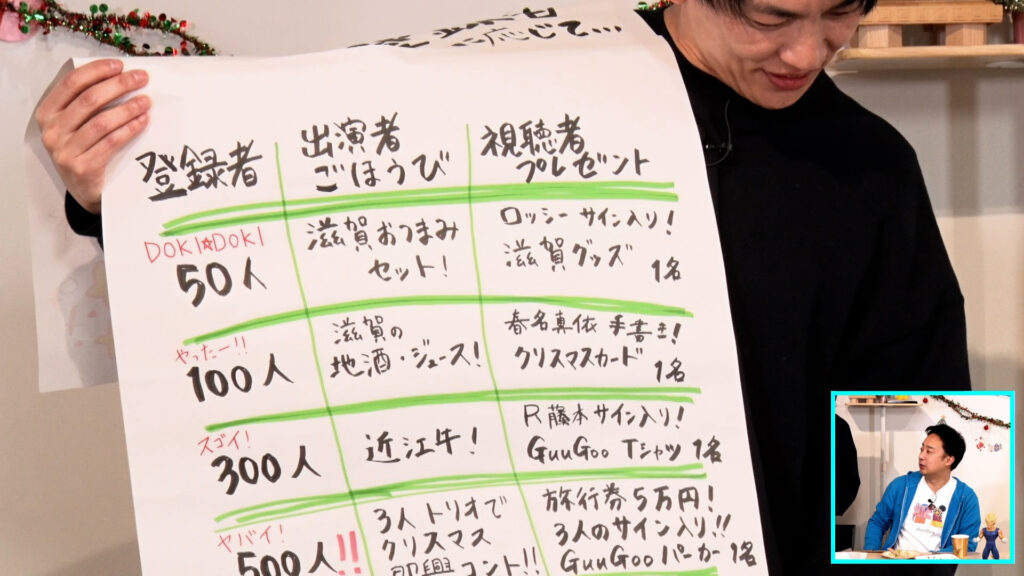 に応じて…
登録者
出演者
ごほうび
視聴者
プレゼント
DOKI☆DOKI
50人
滋賀おつまみ
セット!
ロッシー サイン入り!
滋賀グッズ 1名
やったー!!
100人
滋賀の
地酒・ジュース!
春名真依 手書き!
クリスマスカード 1名
スゴイ!
300人
近江牛!
R藤本サイン入り!
GuuGoo Tシャツ 1名
ヤバイ!
500人!!
3人トリオで
クリスマス
即興コント!!
旅行券5万円!
3人のサイン入り!!
GuuGooパーカー 1名